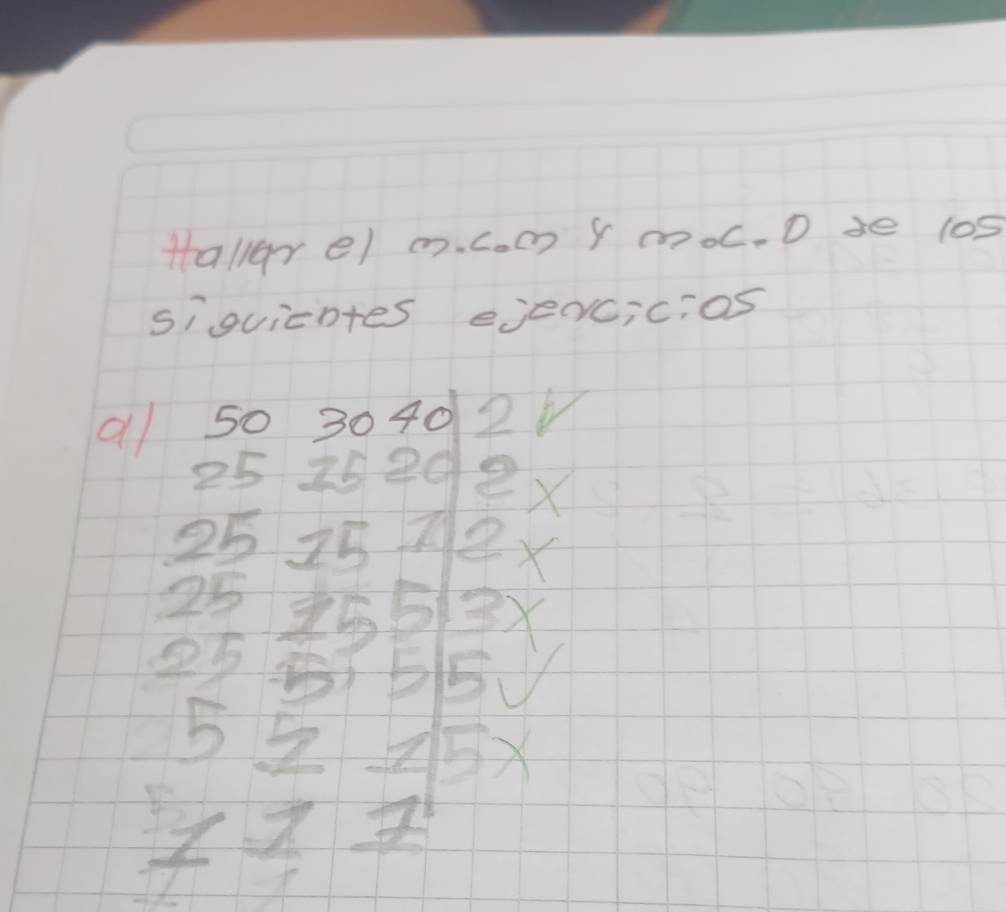 Hallar el m.c.m y m.c.D de los
siguientes ejercicios
a) 50 30 40 | 2 ✓
25 15 20 | 2 x
25 15 | 2 x
25 15 5 | 3 x
25 5 5 | 5 ✓
5 1 1 | 5 x
1 1 1